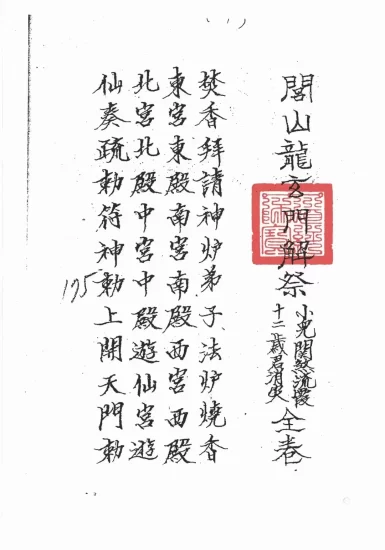 (1)
閭山龍玄門解祭
小児関煞流霞
十二歲君消災
全卷
焚香拜請神炉弟子法炉燒香
東宮東殿南宮南殿西宮西殿
北宮北殿中宮中殿遊仙宮遊
仙奏疏勅符神勅上開天門勅
175